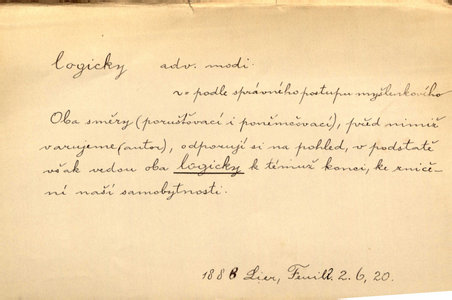 logicky adv. modi.
v= podle správného postupu myšlenkového
Oba směry (porušťovací i poněmčovací), před nimiž
varujeme (autor), odporují si na pohled, v podstatě
však vedou oba logicky k témuž konci, ke zniče-
ní naší samobytnosti.
1888 Lier, Feuill. 2. 6, 20.